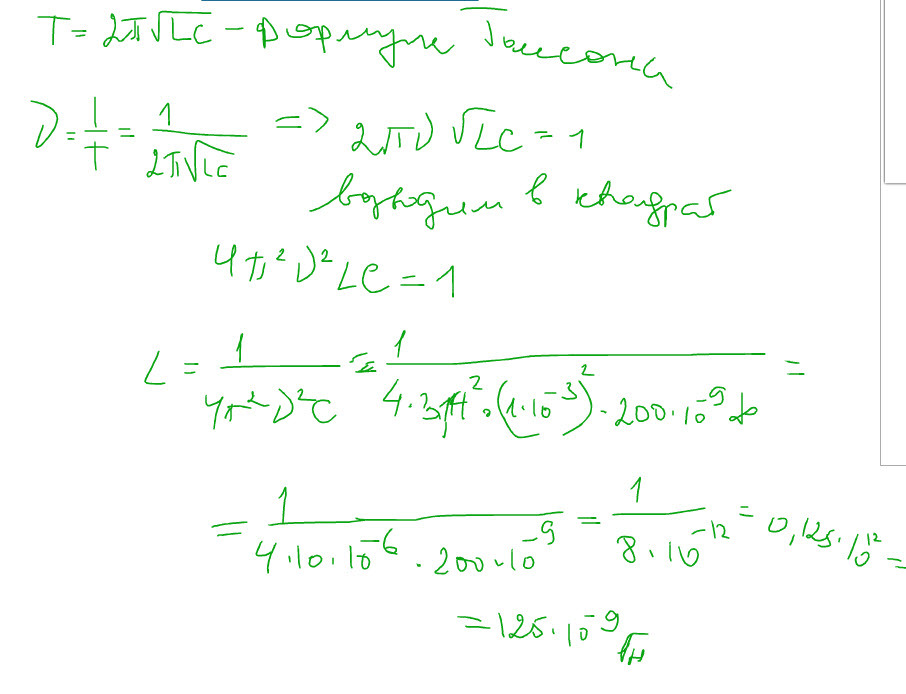 T = 2π√LC - формула Томсона
ν = 1/T = 1/(2π√LC) => 2πν √LC = 1
возводим в квадрат
4π²ν²LC = 1
L = 1/(4π²ν²C) = 1/(4·3,14²·(1·10⁻³)²·200·10⁻⁹ Ф) =
= 1/(4·10·10⁻⁶·200·10⁻⁹) = 1/(8·10⁻¹²) = 0,125·10¹² =
= 125·10⁻⁹ Гн